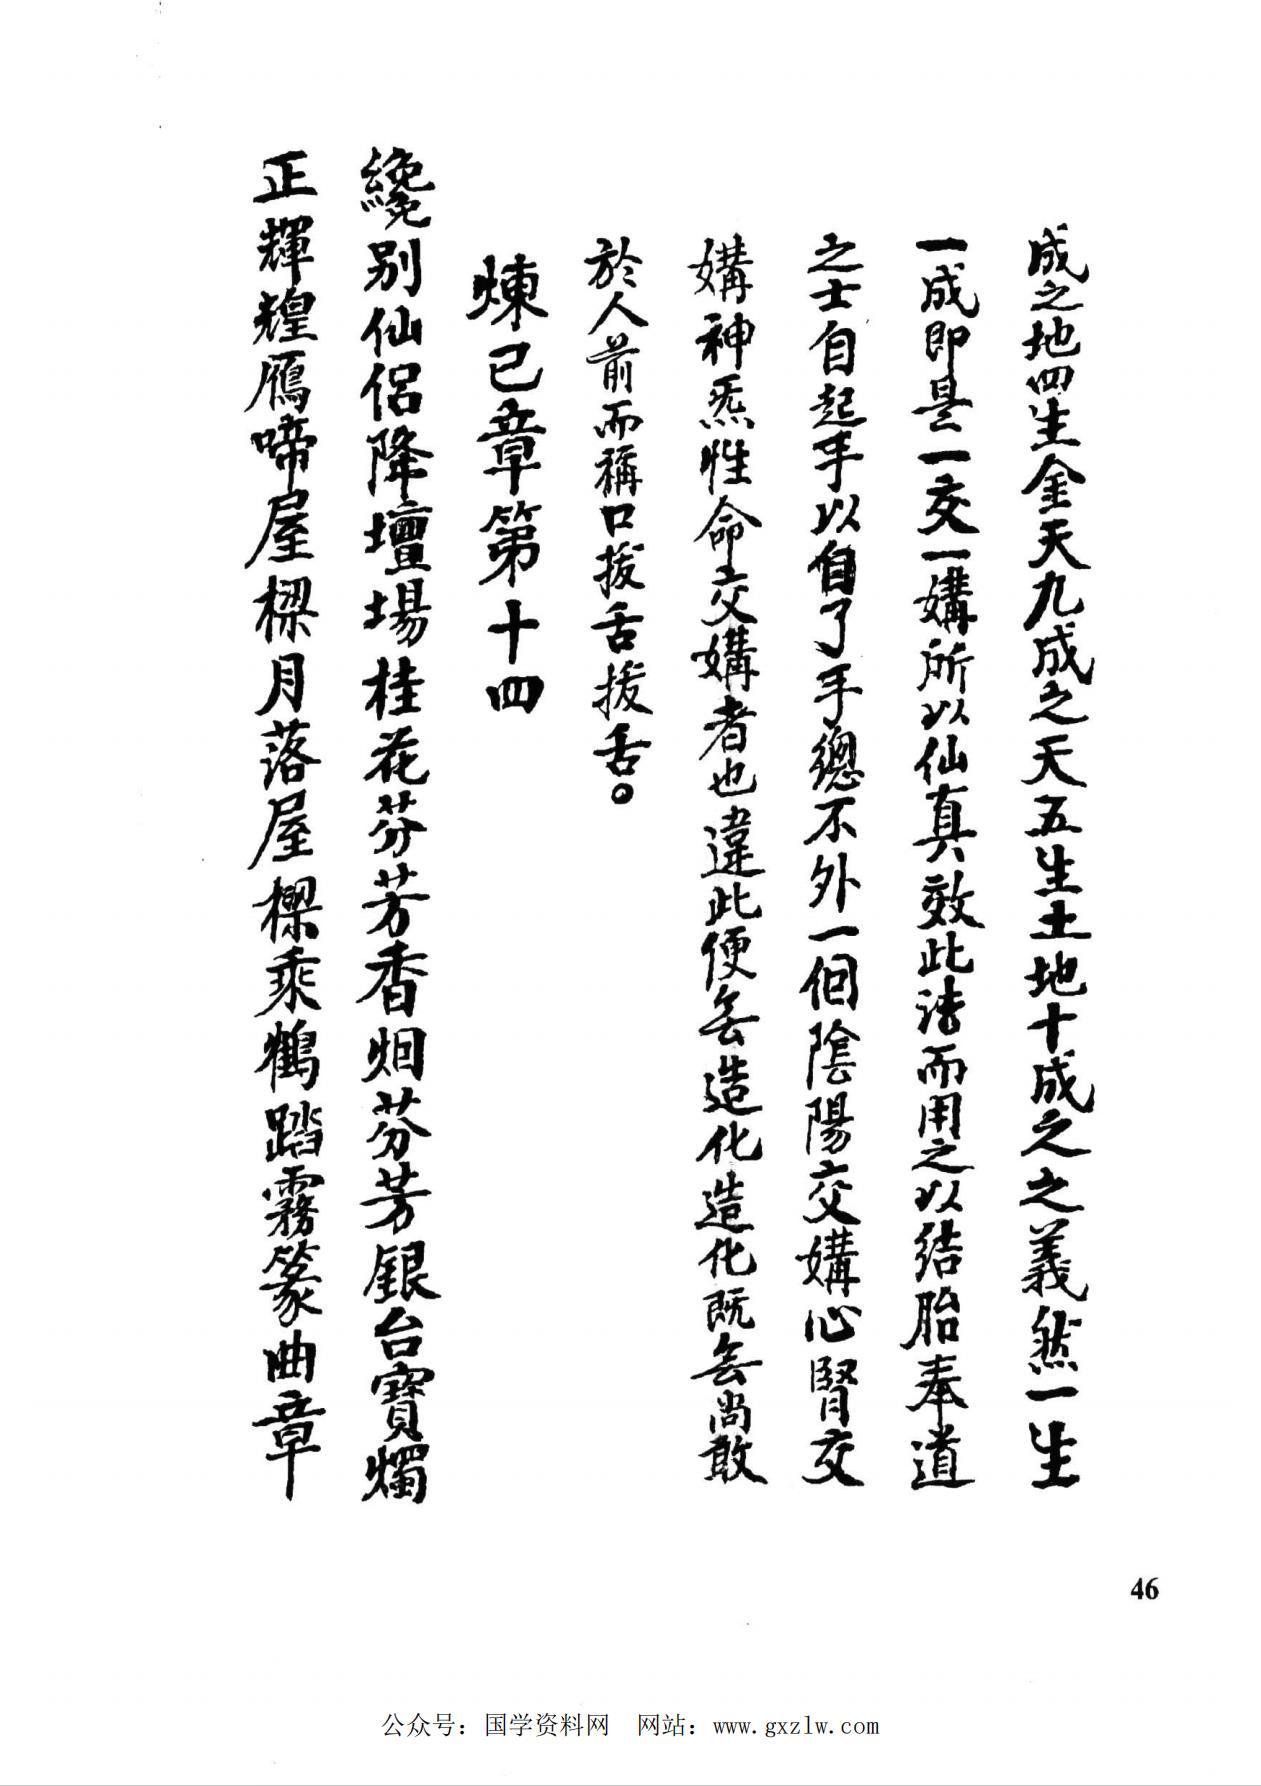 成之地四生金天九成之天五生土地十成之之義然一生
一成即是一交一媾所以仙真效此法而用之以結胎奉道
之士自起手以自了手總不外一個陰陽交媾心腎交
媾神炁性命交媾者也違此便無造化造化既無尚敢
於人前而稱口拔舌拔舌。
煉己章第十四
纔別仙侶降壇場桂花芬芳香烟芬芳銀台寶燭
正輝煌雁啼屋樑月落屋樑乘鶴踏霧篆曲章
46
公众号：国学资料网 网站：www.gxzlw.com